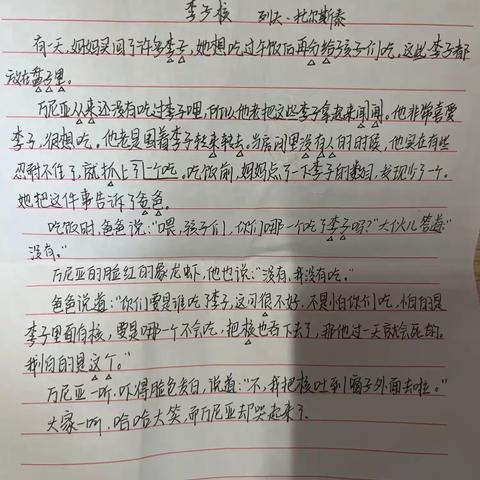 李子核 列夫·托尔斯泰
有一天,妈妈买回了许多李子,她想吃过午饭后再分给孩子们吃,这些李子都
放在盘子里。
万尼亚从来还没有吃过李子哩,所以他老把这些李子拿起来闻闻。他非常喜爱
李子,很想吃。他老是围着李子转来转去。当房间里没有人的时候,他实在有些
忍耐不住了,就抓上了一个吃。吃饭前,妈妈点了一下李子的数目,发现少了一个。
她把这件事告诉了爸爸。
吃饭时,爸爸说:“喂,孩子们,你们哪一个吃了李子吗?”大伙儿答道:
“没有。”
万尼亚的脸红的象龙虾,他也说:“没有,我没有吃。”
爸爸说道:“你们要是谁吃了李子,这可很不好,不是怕你们吃,怕的是
李子里面有核,要是哪一个不会吃,把核也吞下去了,那他过一天就会死的。
我怕的是这个。”
万尼亚一听,吓得脸色发白,说道:“不,我把核吐到窗子外面去啦。”
大家一听,哈哈大笑,而万尼亚却哭起来了.